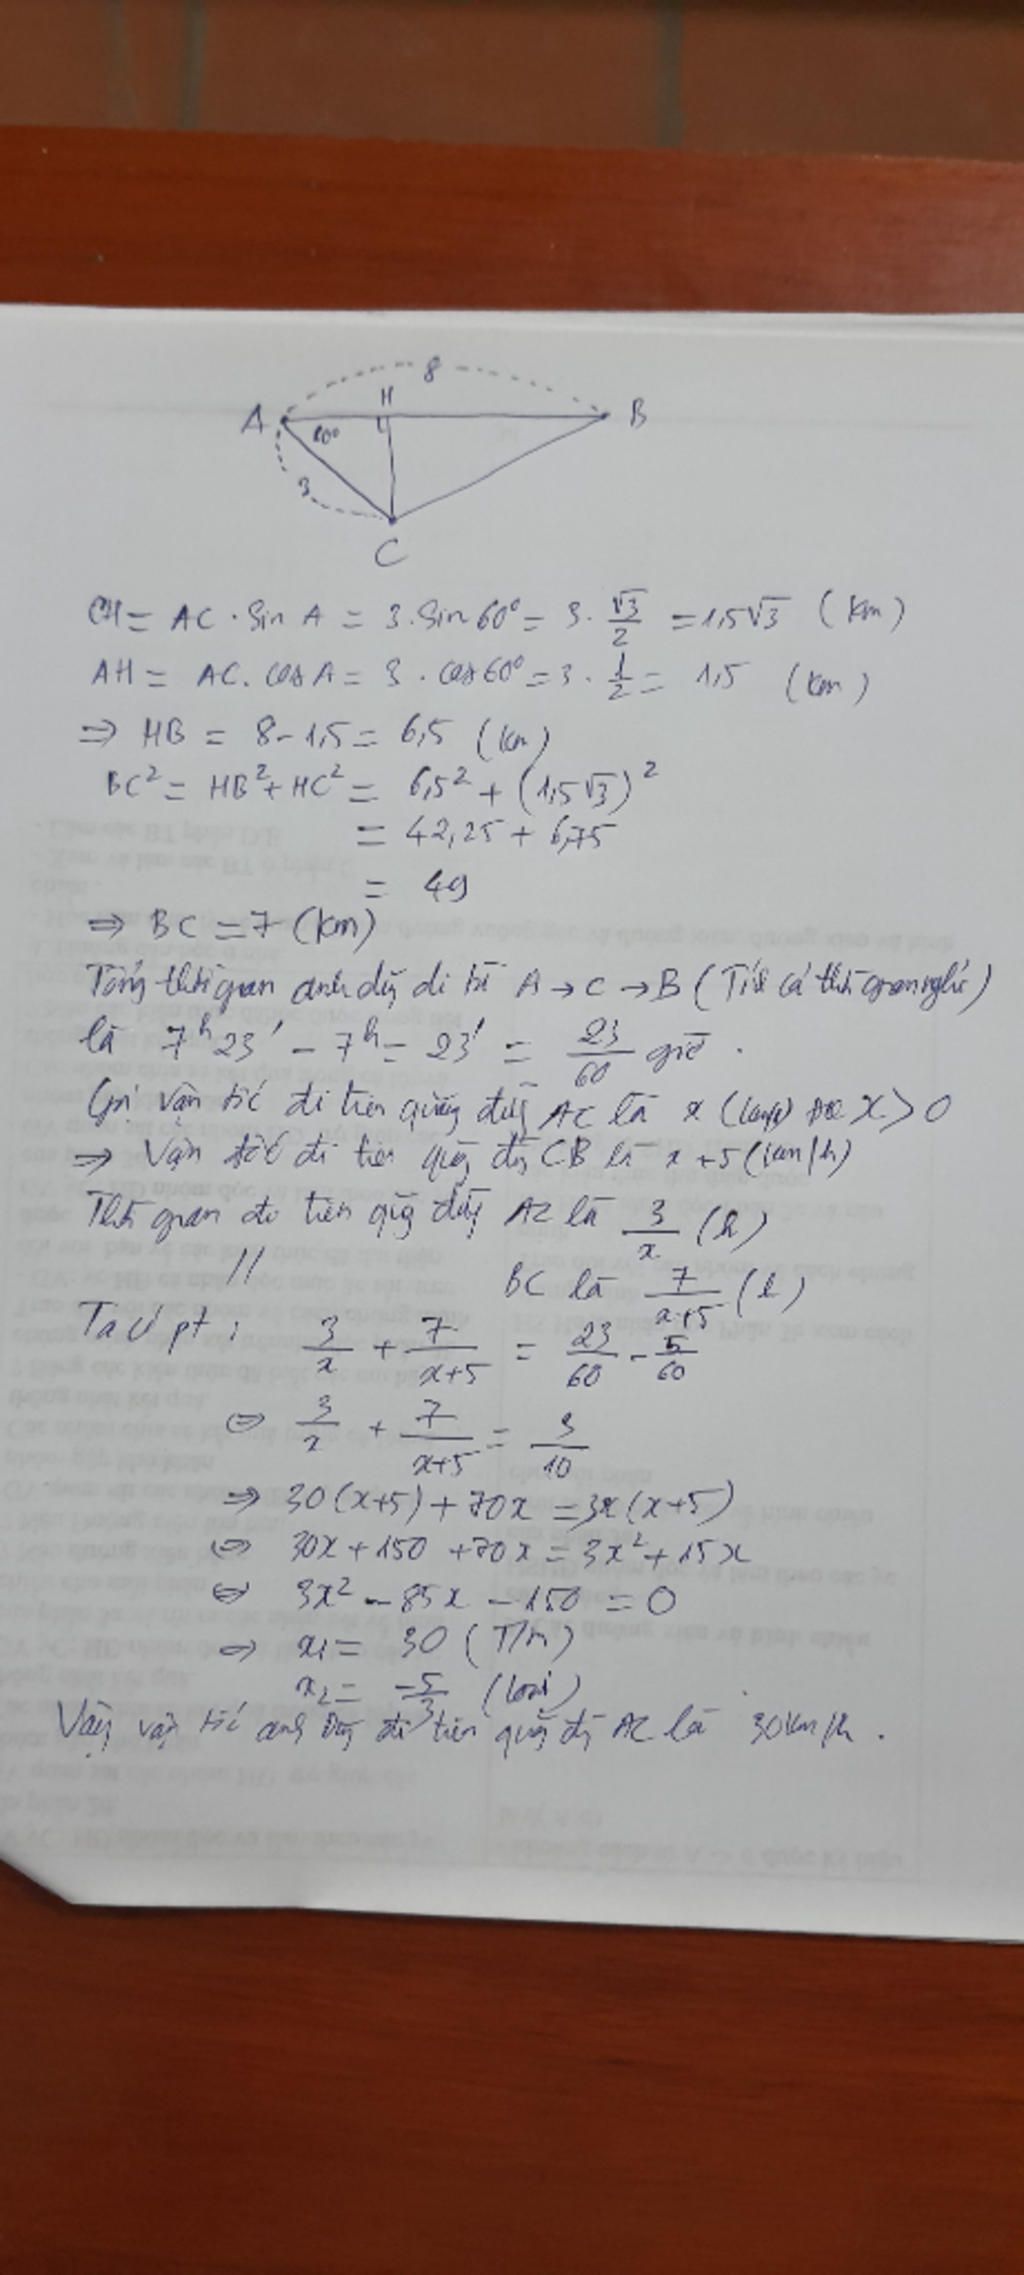 8
A H B
60°
3
C
CH = AC . Sin A = 3.Sin 60° = 3. √3/2 = 1,5√3 (km)
AH = AC. cos A = 3 . cos 60° = 3 . 1/2 = 1,5 (km)
⇒ HB = 8 - 1,5 = 6,5 (km)
BC² = HB² + HC² = 6,5² + (1,5√3)²
= 42,25 + 6,75
= 49
⇒ BC = 7 (km)
Tổng thời gian anh đi từ A → C → B (Tính cả thời gian nghỉ)
là 7h 23' - 7h = 23' = 23/60 giờ .
Gọi vận tốc đi trên quãng đường AC là x (km/h) ĐK x > 0
⇒ Vận tốc đi trên quãng đường CB là x + 5 (km/h)
Thời gian đi trên quãng đường AC là 3/x (h)
// BC là 7/(x+5) (h)
Ta có pt : 3/x + 7/(x+5) = 23/60 - 5/60
⇔ 3/x + 7/(x+5) = 3/10
⇒ 30(x+5) + 70x = 3x(x+5)
⇔ 30x + 150 + 70x = 3x² + 15x
⇔ 3x² - 85x - 150 = 0
⇒ x₁ = 30 (T/m)
x₂ = -5/3 (loại)
Vậy vận tốc anh đi trên quãng đường AC là 30 km/h .